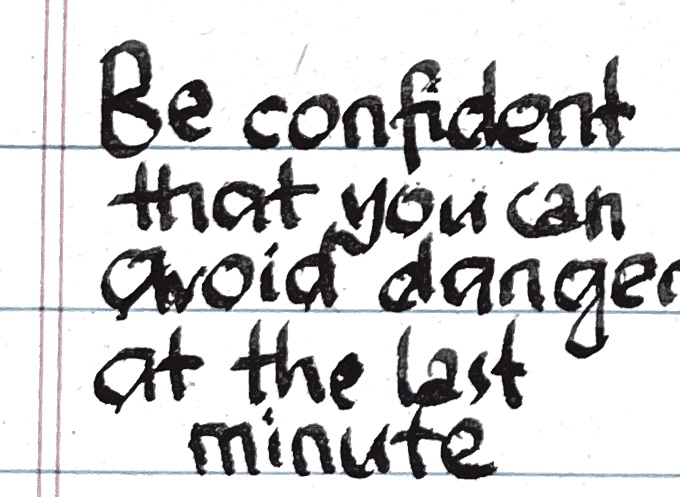 Be confident
that you can
avoid danger
at the last
minute